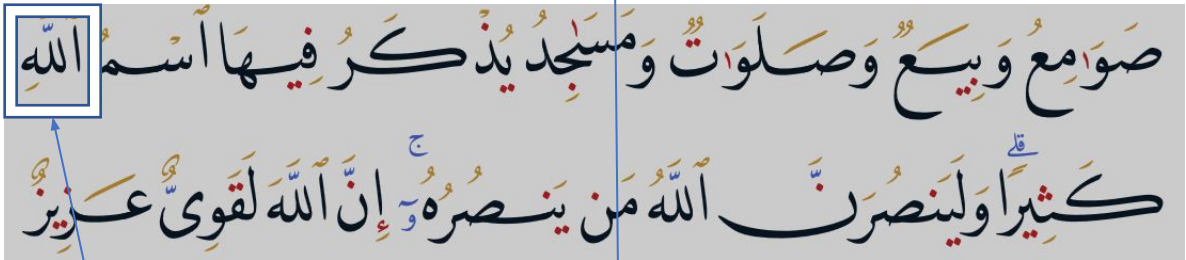 صَوَٰمِعُ وَبِيَعٌ وَصَلَوَٰتٌ وَمَسَٰجِدُ يُذْكَرُ فِيهَا ٱسْمُ ٱللَّهِ
كَثِيرًا ۗ وَلَيَنصُرَنَّ ٱللَّهُ مَن يَنصُرُهُۥٓ ۚ إِنَّ ٱللَّهَ لَقَوِىٌّ عَزِيزٌ